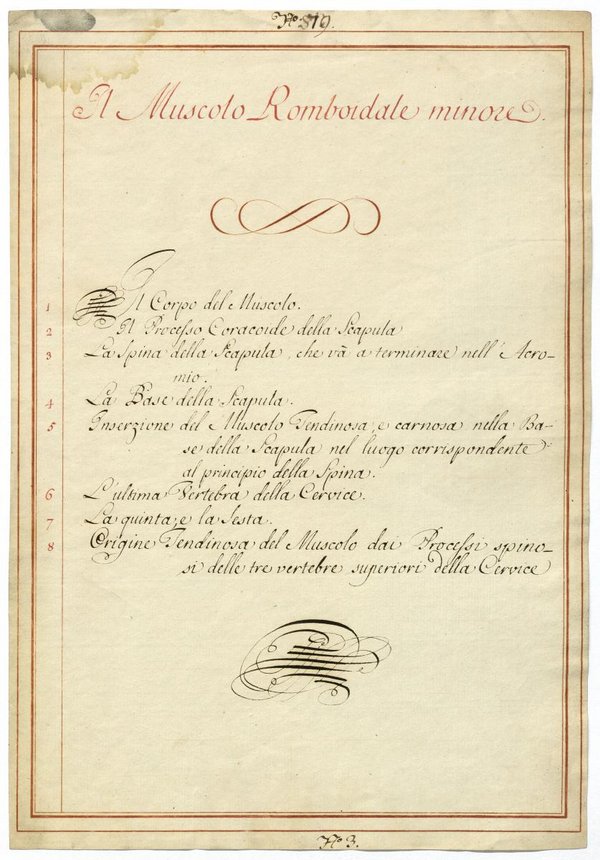 No. 819.
Il Muscolo Romboidale minore.
1 Il Corpo del Muscolo.
2 Il Processo Coracoide della Scapula
3 La Spina della Scapula, che và a terminare nell' Acro-
mio.
4 La Base della Scapula.
5 Inserzione del Muscolo Tendinosa, e carnosa nella Ba-
se della Scapula nel luogo corrispondente
al principio della Spina.
6 L'ultima Vertebra della Cervice.
7 La quinta, e la Sesta.
8 Origine Tendinosa del Muscolo dai Processi spino-
si delle tre vertebre superiori della Cervice
No 3.